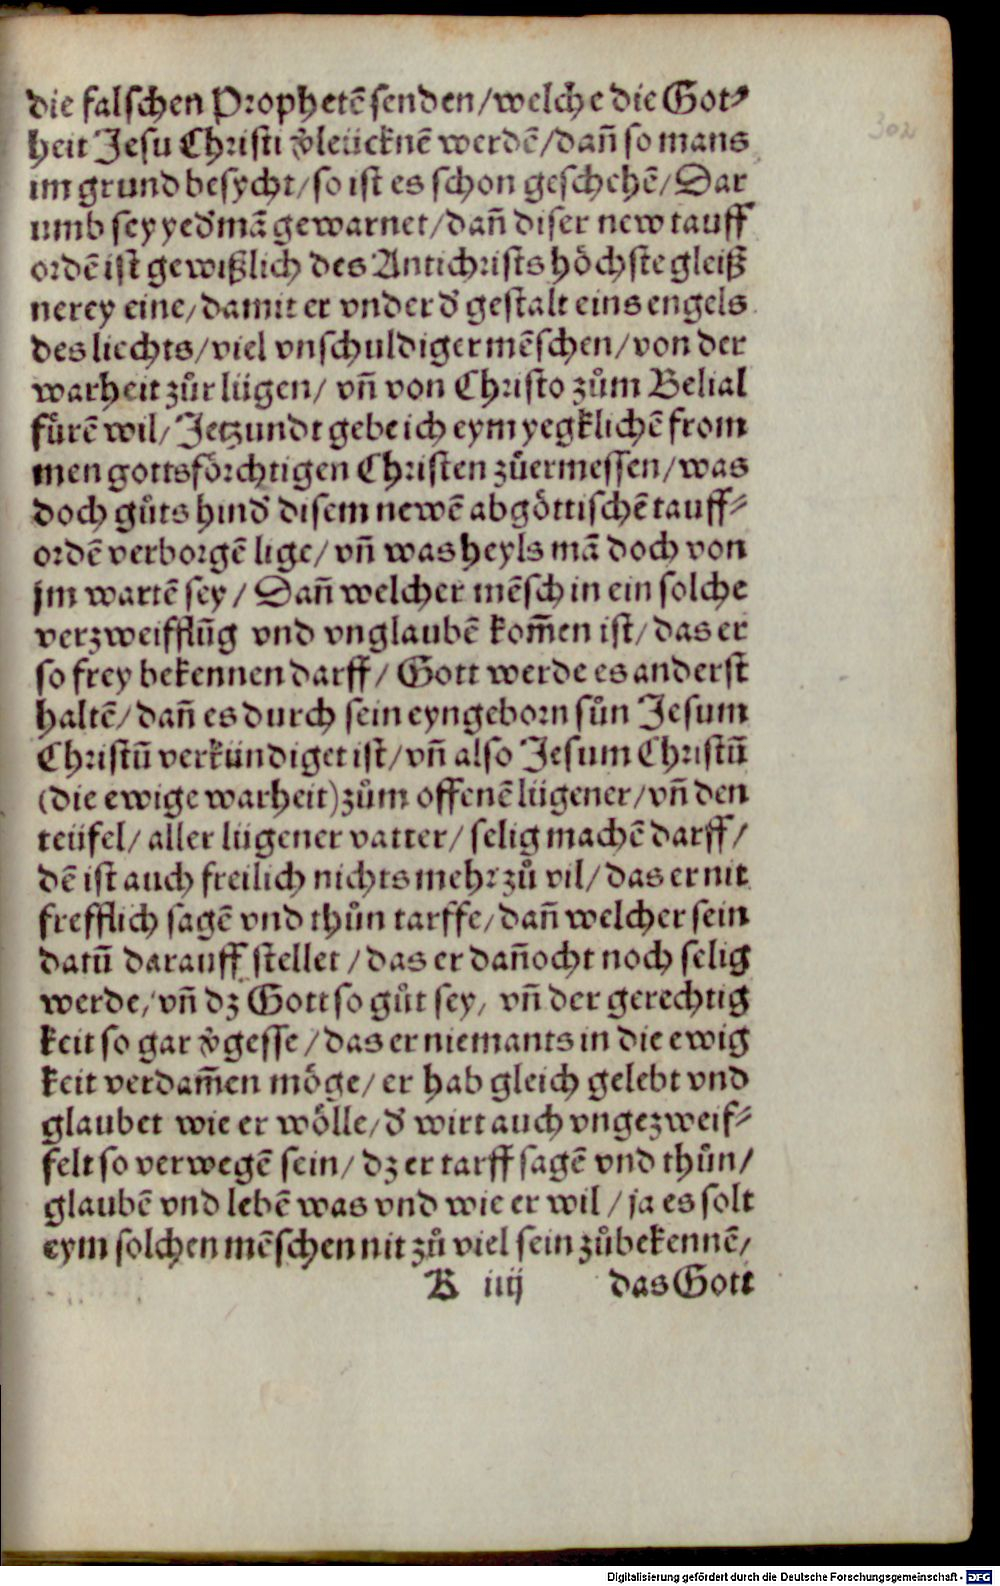 die falschen Prophetē senden/welche die Got⸗
heit Jesu Christi v̄leücknē werdē/dañ so mans
im grund besycht/so ist es schon geschehē/Dar
umb sey yed'mā gewarnet/dañ diser new tauff
ordē ist gewißlich des Antichrists höchste gleiß
nerey eine/damit er vnder d' gestalt eins engels
des liechts/viel vnschuldiger mēschen/von der
warheit zůr lügen/ vñ von Christo zům Belial
fůrē wil/Jetzundt gebe ich eym yegklichē from
men gottsförchtigen Christen zůermessen/was
doch gůts hind' disem newē abgöttischē tauff⸗
ordē verborgē lige/vñ was heyls mā doch von
jm wartē sey/ Dañ welcher mēsch in ein solche
verzweifflūg vnd vnglaubē kom̄en ist/das er
so frey bekennen darff/ Gott werde es anderst
haltē/dañ es durch sein eyngeborn sůn Jesum
Christū verkündiget ist/vñ also Jesum Christū
(die ewige warheit)zům offenē lügener/vñ den
teüfel/aller lügener vatter/selig machē darff/
dē ist auch freilich nichts mehr zů vil/das er nit
frefflich sagē vnd thůn tarffe/dañ welcher sein
datū darauff stellet/das er dañocht noch selig
werde/vñ dz Gott so gůt sey, vñ der gerechtig
keit so gar v̄gesse/das er niemants in die ewig
keit verdam̄en möge/er hab gleich gelebt vnd
glaubet wie er wölle/d' wirt auch vngezweif⸗
felt so verwegē sein/dz er tarff sagē vnd thůn/
glaubē vnd lebē was vnd wie er wil/ja es solt
eym solchen mēschen nit zů viel sein zůbekennē/
K iiij das Gott
302
Digitalisierung gefördert durch die Deutsche Forschungsgemeinschaft - DFG